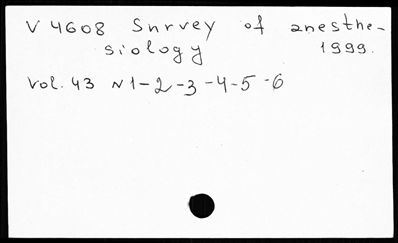 V 4608 Survey of anesthe-
siology 1999.
Vol. 43 N 1-2-3-4-5-6